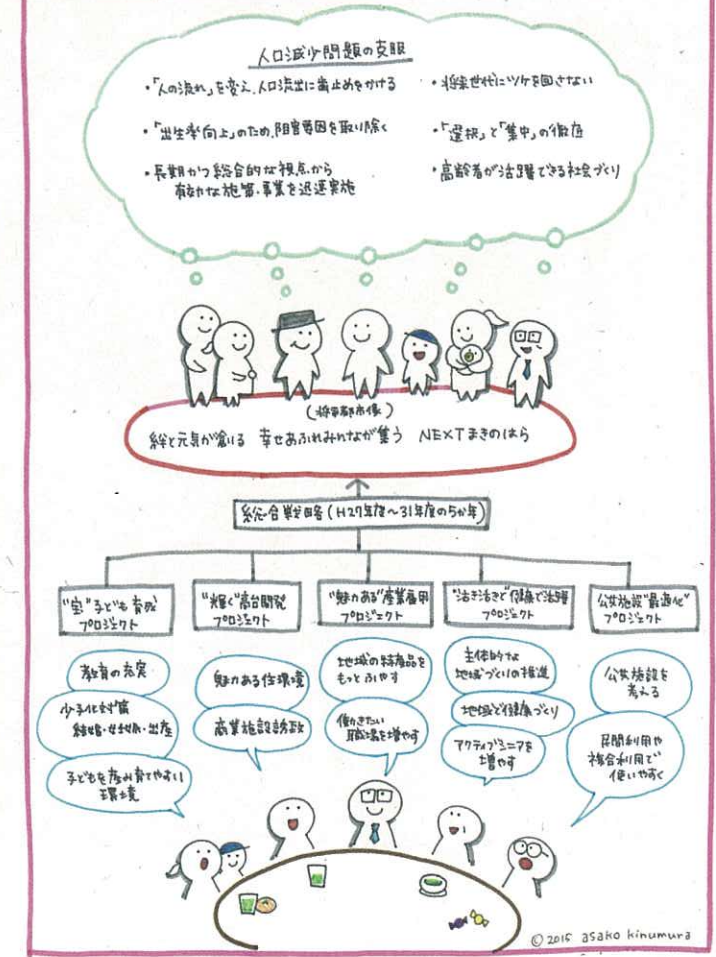 人口減少問題の克服
・「人の流れ」を変え、人口流出に歯止めをかける
・「出生率向上」のため、阻害要因を取り除く
・長期かつ総合的な視点から
有効な施策・事業を迅速実施
・将来世代にツケを回さない
・「選択」と「集中」の徹底
・高齢者が活躍できる社会づくり
(将来都市像)
絆と元気が創る 幸せあふれみんなが集う NEXTまきのはら
総合戦略(H27年度~31年度の5か年)
"宝"子ども育成
プロジェクト
"輝く"高台開発
プロジェクト
"魅力ある"産業雇用
プロジェクト
"活き活きと"健康で活躍
プロジェクト
公共施設"最適化"
プロジェクト
教育の充実
少子化対策
結婚・妊娠・出産
子どもを産み育てやすい
環境
魅力ある住環境
商業施設誘致
地域の特産品を
もっとふやす
働きたい
職場を増やす
主体的な
地域づくりの推進
地域で健康づくり
アクティブシニアを
増やす
公共施設を
考える
民間利用や
複合利用で
使いやすく
© 2015 asako kinumura